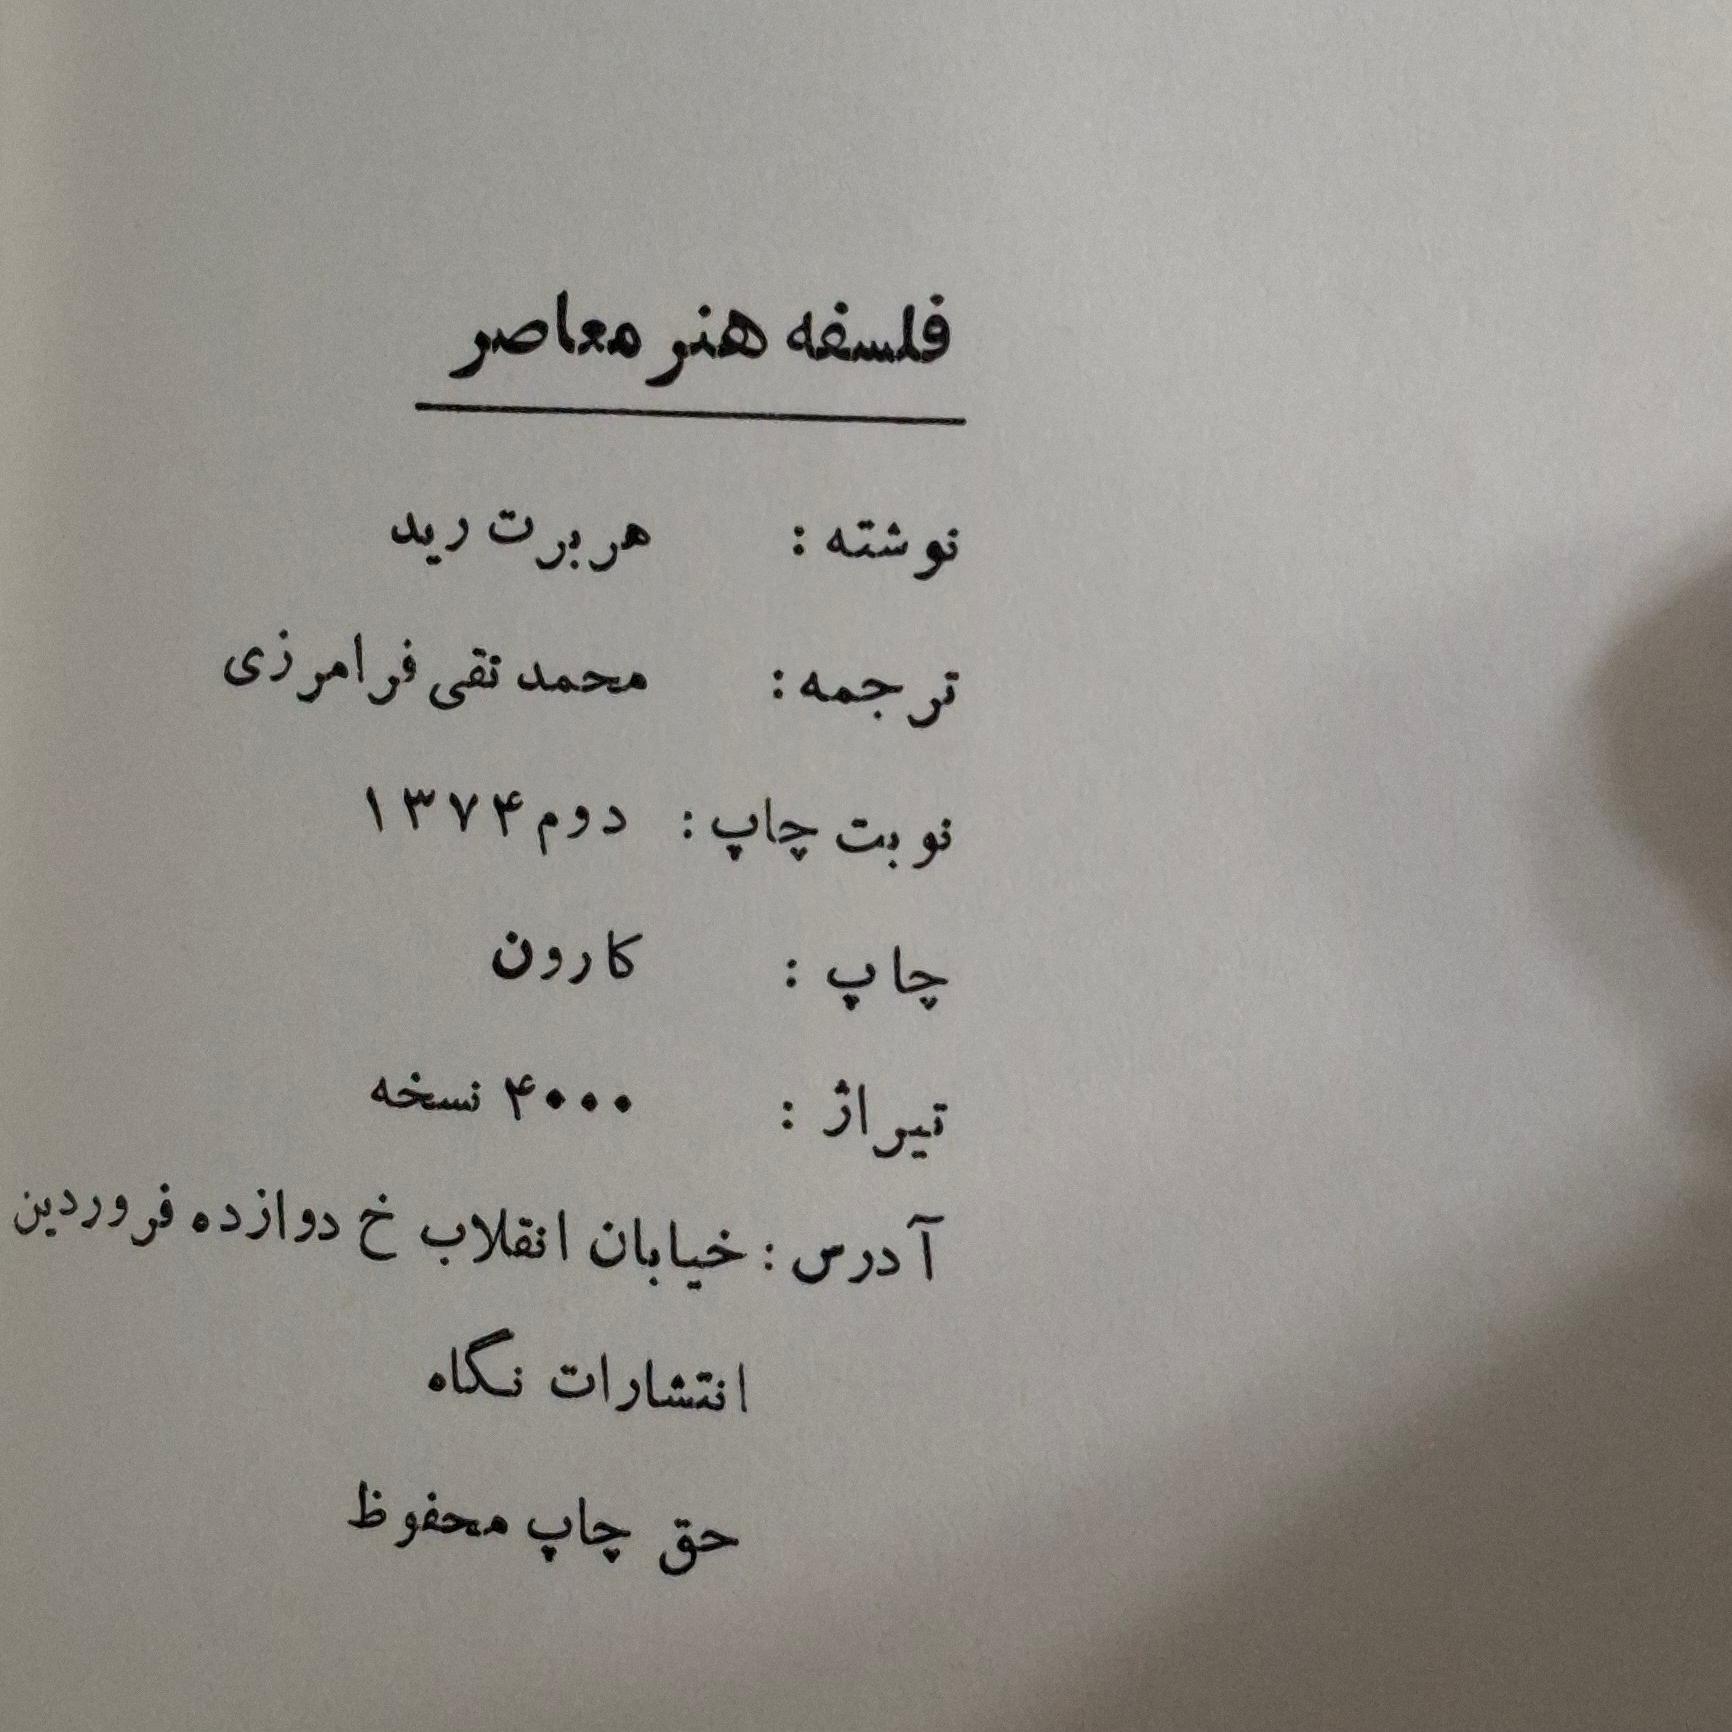 فلسفه هنر معاصر
نوشته : هربرت رید
ترجمه : محمد تقی فرامرزی
نوبت چاپ : دوم ۱۳۷۴
چاپ : کارون
تیراژ : ۴۰۰۰ نسخه
آدرس : خیابان انقلاب خ دوازده فروردین
انتشارات نگاه
حق چاپ محفوظ